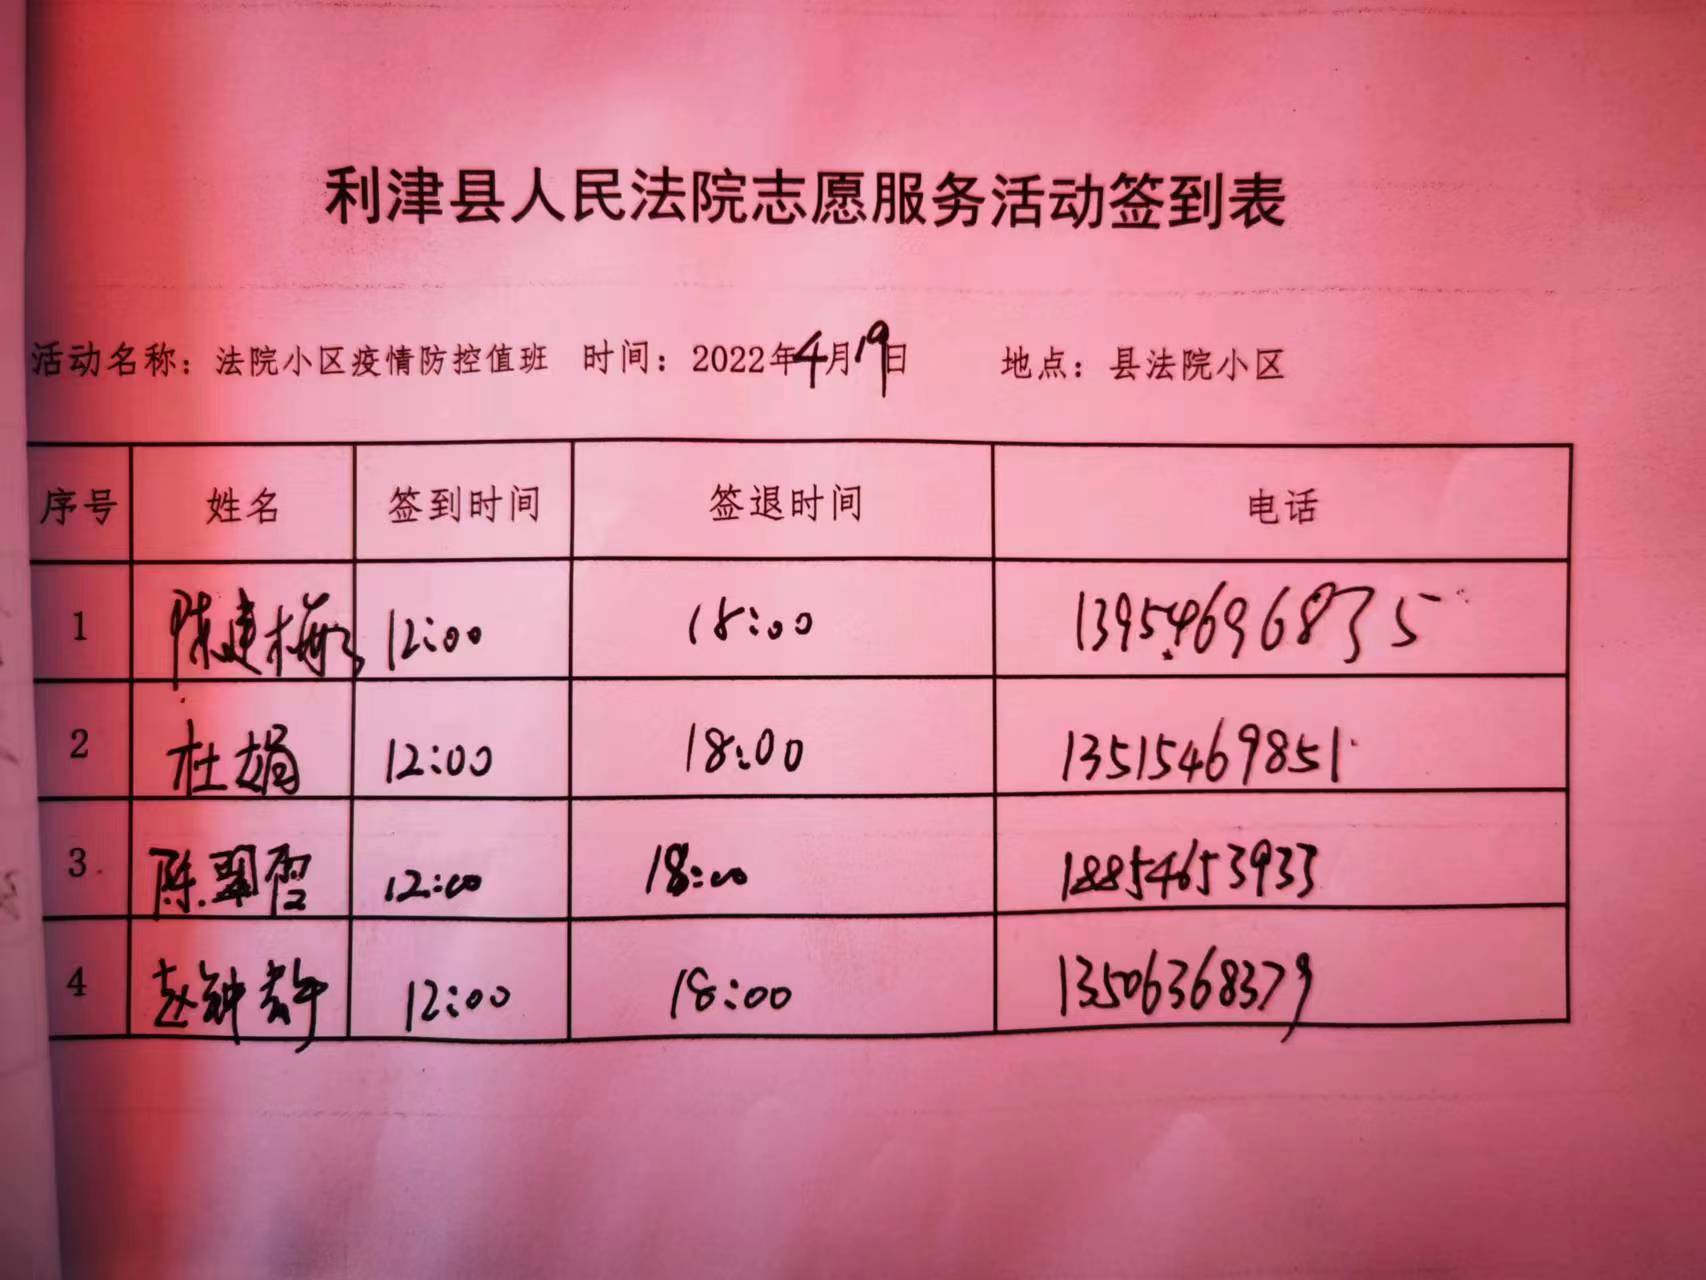 利津县人民法院志愿服务活动签到表
活动名称：法院小区疫情防控值班 时间：2022年4月19日 地点：县法院小区
序号 姓名 签到时间 签退时间 电话
1 陈建梅 12:00 18:00 13954696835
2 杜娟 12:00 18:00 13515469851
3 陈翠雪 12:00 18:00 18854653933
4 赵钟 12:00 18:00 13506368379